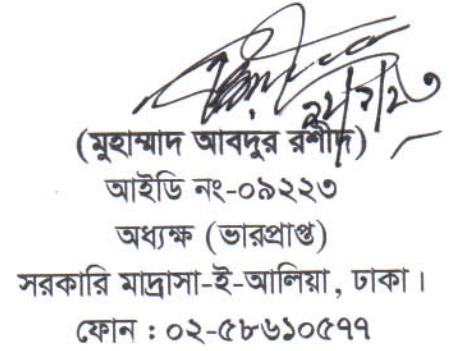 (মুহাম্মাদ আবদুর রশীদ)
আইডি নং-০৯২২৩
অধ্যক্ষ (ভারপ্রাপ্ত)
সরকারি মাদ্রাসা-ই-আলিয়া, ঢাকা।
ফোন : ০২-৫৮৬১০৫৭৭